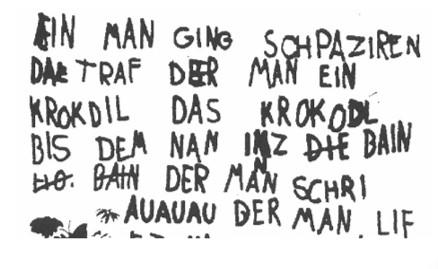 EIN MAN GING SCHPAZIREN
DA TRAF DER MAN EIN
KROKDIL DAS KROKODL
BIS DEM NAN INZ DIE BAIN
BAIN DER MAN SCHRI
AUAUAU DER MAN LIF